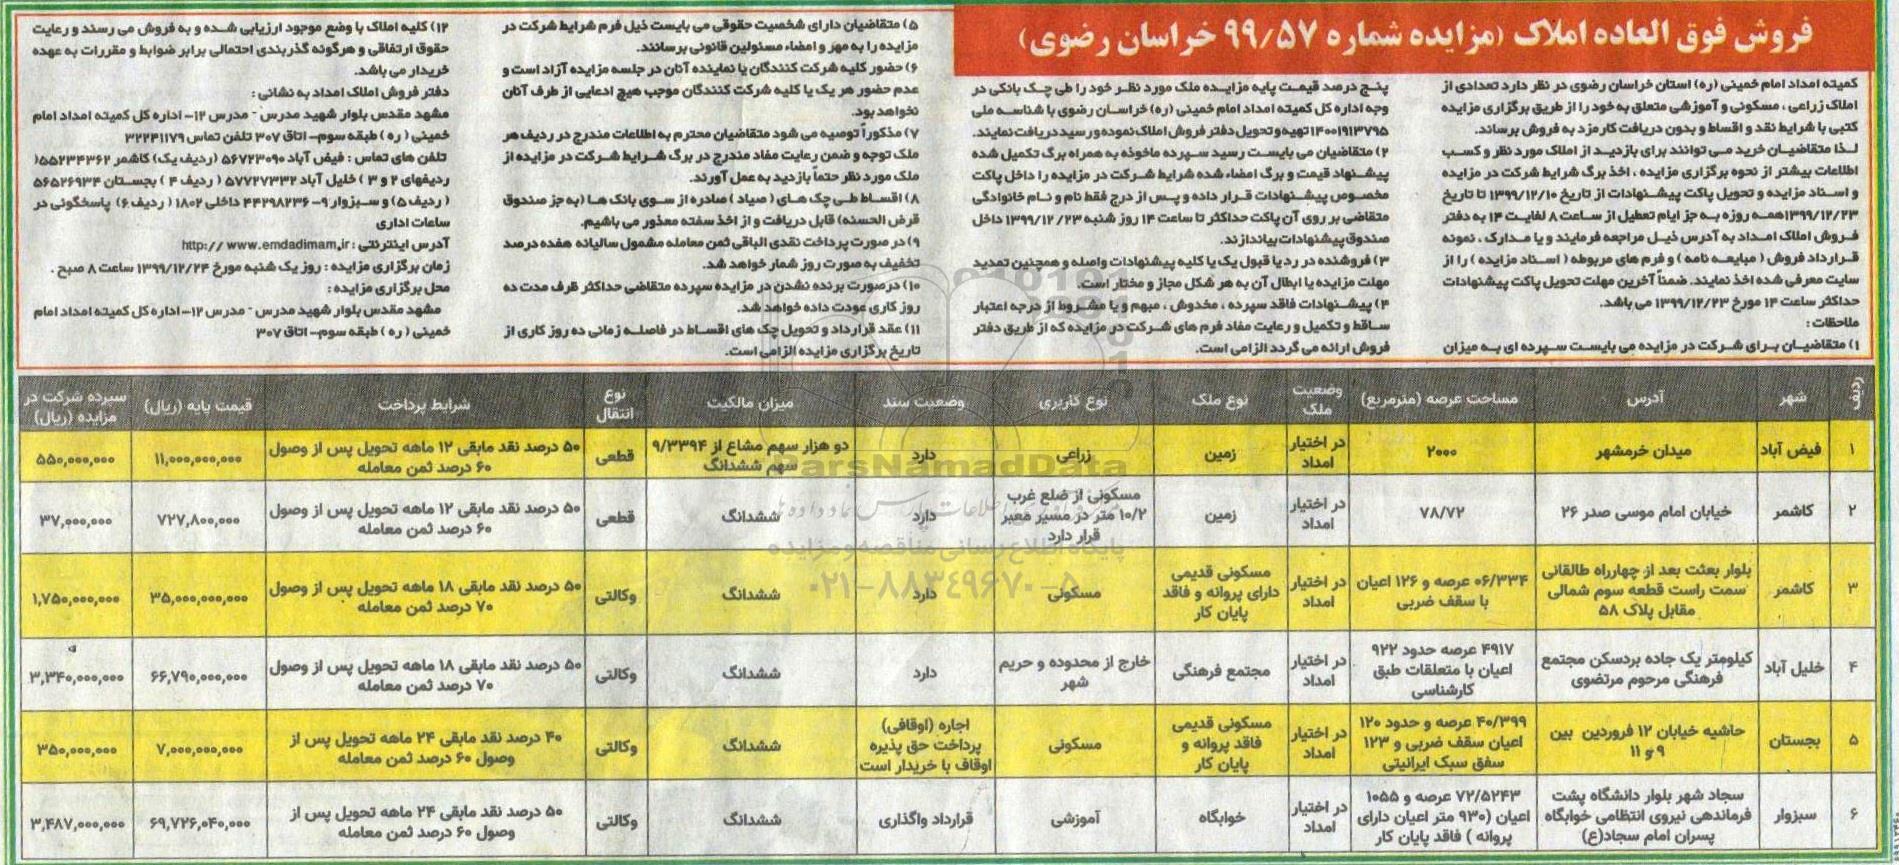 فروش فوق العاده املاک (مزایده شماره ۹۹/۵۷ خراسان رضوی)
کمیته امداد امام خمینی (ره) استان خراسان رضوی در نظر دارد تعدادی از
املاک زراعی ، مسکونی و آموزشی متعلق به خود را از طریق برگزاری مزایده
کتبی با شرایط نقد و اقساط و بدون دریافت کارمزد به فروش برساند.
لذا متقاضیان خرید می توانند برای بازدید از املاک مورد نظر و کسب
اطلاعات بیشتر از نحوه برگزاری مزایده ، اخذ برگ شرایط شرکت در مزایده
و اسناد مزایده و تحویل پاکت پیشنهادات از تاریخ ۱۳۹۹/۱۲/۱۰ تا تاریخ
۱۳۹۹/۱۲/۲۳همه روزه به جز ایام تعطیل از ساعت ۸ لغایت ۱۴ به دفتر
فروش املاک امداد به آدرس ذیل مراجعه فرمایند و یا مدارک ، نمونه
قرارداد فروش ( مبایعه نامه ) و فرم های مربوطه ( اسناد مزایده ) را از
سایت معرفی شده اخذ نمایند. ضمناً آخرین مهلت تحویل پاکت پیشنهادات
حداکثر ساعت ۱۴ مورخ ۱۳۹۹/۱۲/۲۳ می باشد.
ملاحظات :
۱) متقاضیان برای شرکت در مزایده می بایست سپرده ای به میزان
پنج درصد قیمت پایه مزایده ملک مورد نظر خود را طی چک بانکی در
وجه اداره کل کمیته امداد امام خمینی (ره) خراسان رضوی با شناسه ملی
۱۴۰۰۱۹۱۳۷۹۵ تهیه و تحویل دفتر فروش املاک نموده و رسید دریافت نمایند.
۲) متقاضیان می بایست رسید سپرده ماخوذه به همراه برگ تکمیل شده
پیشنهاد قیمت و برگ امضاء شده شرایط شرکت در مزایده را داخل پاکت
مخصوص پیشنهادات قرار داده و پس از درج فقط نام و نام خانوادگی
متقاضی بر روی آن پاکت حداکثر تا ساعت ۱۴ روز شنبه ۱۳۹۹/۱۲/۲۳ داخل
صندوق پیشنهادات بیاندازند.
۳) فروشنده در رد یا قبول یک یا کلیه پیشنهادات واصله و همچنین تمدید
مهلت مزایده یا ابطال آن به هر شکل مجاز و مختار است.
۴) پیشنهادات فاقد سپرده ، مخدوش ، مبهم و یا مشروط از درجه اعتبار
ساقط و تکمیل و رعایت مفاد فرم های شرکت در مزایده که از طریق دفتر
فروش ارائه می گردد الزامی است.
۵) متقاضیان دارای شخصیت حقوقی می بایست ذیل فرم شرایط شرکت در
مزایده را به مهر و امضاء مسئولین قانونی برسانند.
۶) حضور کلیه شرکت کنندگان یا نماینده آنان در جلسه مزایده آزاد است و
عدم حضور هر یک یا کلیه شرکت کنندگان موجب هیچ ادعایی از طرف آنان
نخواهد بود.
۷) مذکوراً توصیه می شود متقاضیان محترم به اطلاعات مندرج در ردیف هر
ملک توجه و ضمن رعایت مفاد مندرج در برگ شرایط شرکت در مزایده از
ملک مورد نظر حتماً بازدید به عمل آورند.
۸) اقساط طی چک های ( صیاد ) صادره از سوی بانک ها (به جز صندوق
قرض الحسنه) قابل دریافت و از اخذ سفته معذور می باشیم.
۹) در صورت پرداخت نقدی الباقی ثمن معامله مشمول سالیانه هفده درصد
تخفیف به صورت روز شمار خواهد شد.
۱۰) در صورت برنده نشدن در مزایده سپرده متقاضی حداکثر ظرف مدت ده
روز کاری عودت داده خواهد شد.
۱۱) عقد قرارداد و تحویل چک های اقساط در فاصله زمانی ده روز کاری از
تاریخ برگزاری مزایده الزامی است.
۱۲) کلیه املاک با وضع موجود ارزیابی شده و به فروش می رسند و رعایت
حقوق ارتفاقی و هرگونه گذربندی احتمالی برابر ضوابط و مقررات به عهده
خریدار می باشد.
دفتر فروش املاک امداد به نشانی :
مشهد مقدس بلوار شهید مدرس - مدرس ۱۲- اداره کل کمیته امداد امام
خمینی ( ره ) طبقه سوم- اتاق ۳۰۷ تلفن تماس ۳۲۲۴۱۱۷۹
تلفن های تماس : فیض آباد ۵۶۷۲۳۰۹۰ (ردیف یک) کاشمر ۵۵۲۳۴۳۶۲(
ردیفهای ۲ و ۳ ) خلیل آباد ۵۷۷۲۷۳۳۲ ( ردیف ۴ ) بجستان ۵۶۵۲۶۹۳۴
( ردیف ۵) و سبزوار ۹-۴۴۲۹۸۲۳۶ داخلی ۱۸۰۲ ( ردیف ۶) پاسخگونی در
ساعات اداری
آدرس اینترنتی : http:// www.emdadimam,ir
زمان برگزاری مزایده : روز یک شنبه مورخ ۱۳۹۹/۱۲/۲۴ ساعت ۸ صبح .
محل برگزاری مزایده :
مشهد مقدس بلوار شهید مدرس - مدرس ۱۲- اداره کل کمیته امداد امام
خمینی ( ره ) طبقه سوم- اتاق ۳۰۷
ردیف شهر آدرس مساحت عرصه (مترمربع) وضعیت ملک نوع ملک نوع کاربری وضعیت سند میزان مالکیت نوع انتقال شرایط پرداخت قیمت پایه (ریال) سپرده شرکت در مزایده (ریال)
۱ فیض آباد میدان خرمشهر ۲۰۰۰ در اختیار امداد زمین زراعی دارد دو هزار سهم مشاع از ۹/۳۳۹۴ سهم ششدانگ قطعی ۵۰ درصد نقد مابقی ۱۲ ماهه تحویل پس از وصول ۶۰ درصد ثمن معامله ۱۱,۰۰۰,۰۰۰,۰۰۰ ۵۵۰,۰۰۰,۰۰۰
۲ کاشمر خیابان امام موسی صدر ۲۶ ۷۸/۷۲ در اختیار امداد زمین مسکونی از ضلع غرب ۱۰/۲ متر در مسیر معبر قرار دارد دارد ششدانگ قطعی ۵۰ درصد نقد مابقی ۱۲ ماهه تحویل پس از وصول ۶۰ درصد ثمن معامله ۷۲۷,۸۰۰,۰۰۰ ۳۷,۰۰۰,۰۰۰
۳ کاشمر بلوار بعثت بعد از چهارراه طالقانی سمت راست قطعه سوم شمالی مقابل پلاک ۵۸ ۰۶/۳۳۴ عرصه و ۱۲۶ اعیان با سقف ضربی در اختیار امداد مسکونی قدیمی دارای پروانه و فاقد پایان کار مسکونی دارد ششدانگ وکالتی ۵۰ درصد نقد مابقی ۱۸ ماهه تحویل پس از وصول ۷۰ درصد ثمن معامله ۳۵,۰۰۰,۰۰۰,۰۰۰ ۱,۷۵۰,۰۰۰,۰۰۰
۴ خلیل آباد کیلومتر یک جاده بردسکن مجتمع فرهنگی مرحوم مرتضوی ۴۹۱۷ عرصه حدود ۹۲۲ اعیان با متعلقات طبق کارشناسی در اختیار امداد مجتمع فرهنگی خارج از محدوده و حریم شهر دارد ششدانگ وکالتی ۵۰ درصد نقد مابقی ۱۸ ماهه تحویل پس از وصول ۷۰ درصد ثمن معامله ۶۶,۷۹۰,۰۰۰,۰۰۰ ۳,۳۴۰,۰۰۰,۰۰۰
۵ بجستان حاشیه خیابان ۱۲ فروردین بین ۹ و ۱۱ ۴۰/۳۹۹ عرصه و حدود ۱۲۰ اعیان سقف ضربی و ۱۲۳ سقق سبک ایرانیتی در اختیار امداد مسکونی قدیمی فاقد پروانه و پایان کار مسکونی اجاره (اوقافی) پرداخت حق پذیره اوقاف با خریدار است ششدانگ وکالتی ۴۰ درصد نقد مابقی ۲۴ ماهه تحویل پس از وصول ۶۰ درصد ثمن معامله ۷,۰۰۰,۰۰۰,۰۰۰ ۳۵۰,۰۰۰,۰۰۰
۶ سبزوار سجاد شهر بلوار دانشگاه پشت فرماندهی نیروی انتظامی خوابگاه پسران امام سجاد(ع) ۷۲/۵۲۴۳ عرصه و ۱۰۵۵ اعیان (۹۳۰ متر اعیان دارای پروانه ) فاقد پایان کار در اختیار امداد خوابگاه آموزشی قرارداد واگذاری ششدانگ وکالتی ۵۰ درصد نقد مابقی ۲۴ ماهه تحویل پس از وصول ۶۰ درصد ثمن معامله ۶۹,۷۲۶,۰۴۰,۰۰۰ ۳,۴۸۷,۰۰۰,۰۰۰
ParsNamadData
پایگاه اطلاع رسانی مناقصه و مزایده
۰۲۱-۸۸۳۴۹۶۷۰-۵